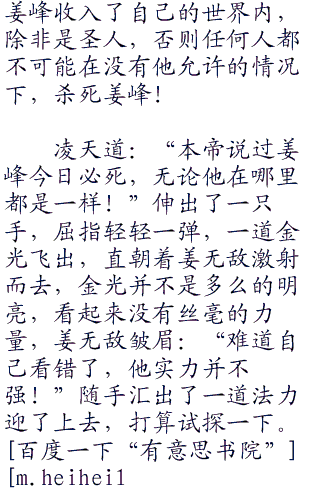 姜峰收入了自己的世界内，
除非是圣人，否则任何人都
不可能在没有他允许的情况
下，杀死姜峰！
凌天道：“本帝说过姜
峰今日必死，无论他在哪里
都是一样！”伸出了一只
手，屈指轻轻一弹，一道金
光飞出，直朝着姜无敌激射
而去，金光并不是多么的明
亮，看起来没有丝毫的力
量，姜无敌皱眉：“难道自
己看错了，他实力并不
强！”随手汇出了一道法力
迎了上去，打算试探一下。
[百度一下“有意思书院”]
[m.heihei1